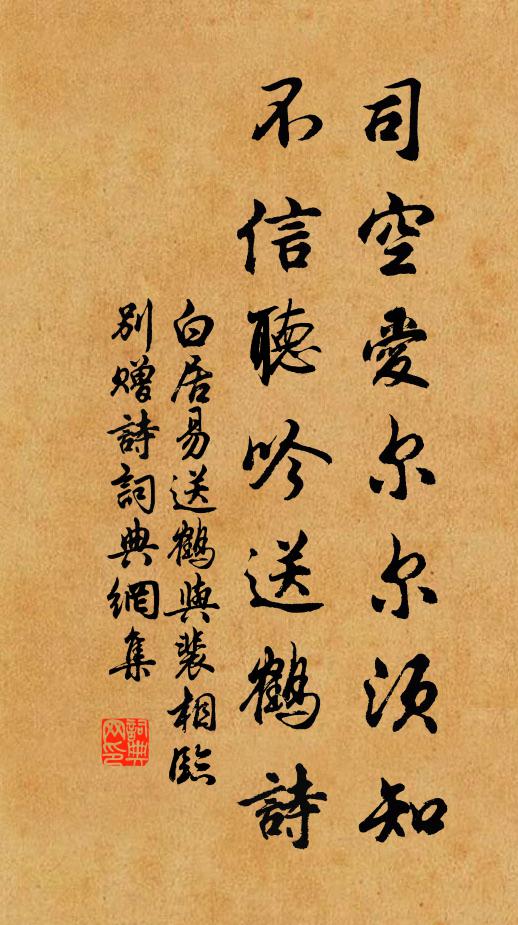 司空愛尔尔須知
不信聽吟送鶴詩
白居易送鶴與裴相臨
別贈詩詞典網集
詞典
网印